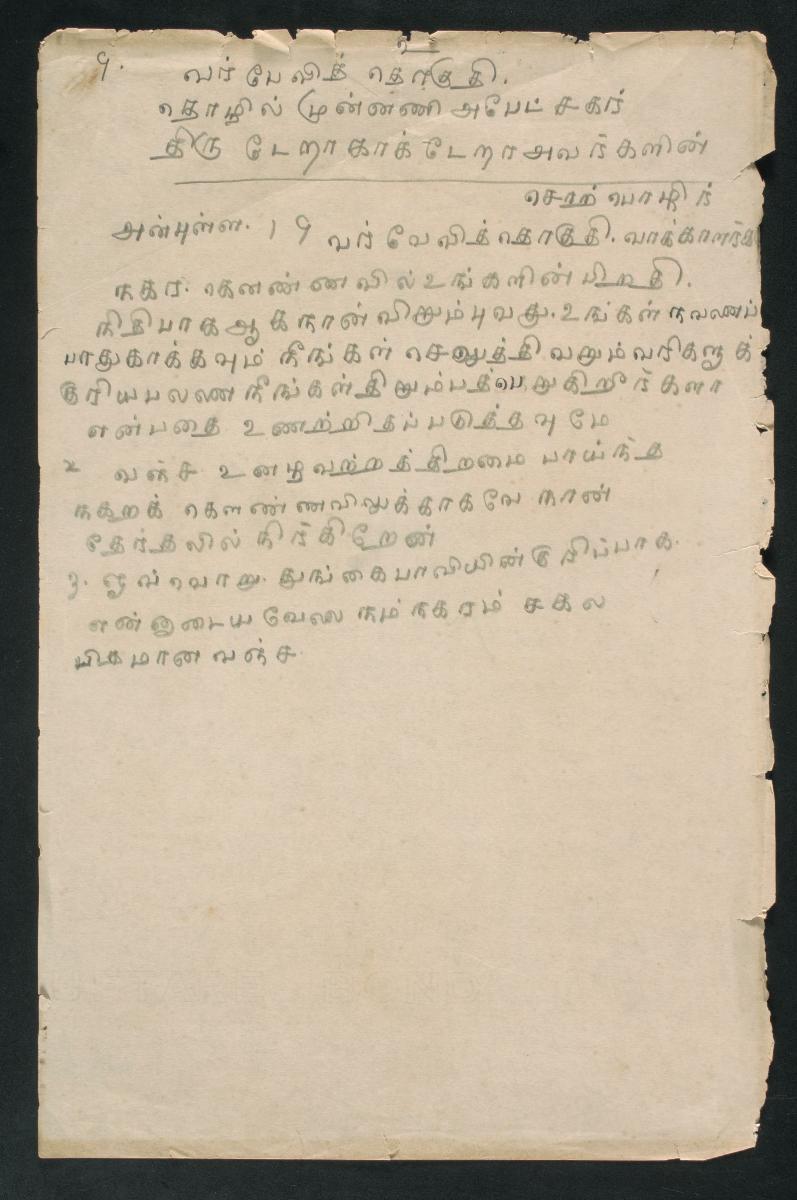 உ
9. வர் பேலித் தொகுதி.
தொழில் முன்னணி அபேட் சகர்
திரு டேறாகாக் டேறா அவர்களின்
சொற் பொழிர்
அன்புள்ள. 19 வர் வேலித் தொகுதி. வாக்காளர்க
நகர. கௌண்ணவில் உங்களின் பிறதி.
நிதியாக ஆக நான் விறும்புவது. உங்கள் நலணப்
பாதுகாக்கவும் நீங்கள் செலுத்தி வறும் வரிகளுக்
குரிய பலண நீங்கள் திறும்பத் பெறுகிறீர்களா
என்பதை உணற்றிதப் படுத்தவுமே
x வஞ்ச ஊழலற்றத் திறமை பாய்ந்த
நகறக் கௌண்ணவிலுக்காகவே நான்
தேர்தலில் நிர்கிறேன்
3. ஒவ்வொறு. துங்கைபாவியின் குறிப்பாக.
என்னுடைய வேலை நம் நகரம் சகல
மிகமான வஞ்ச.